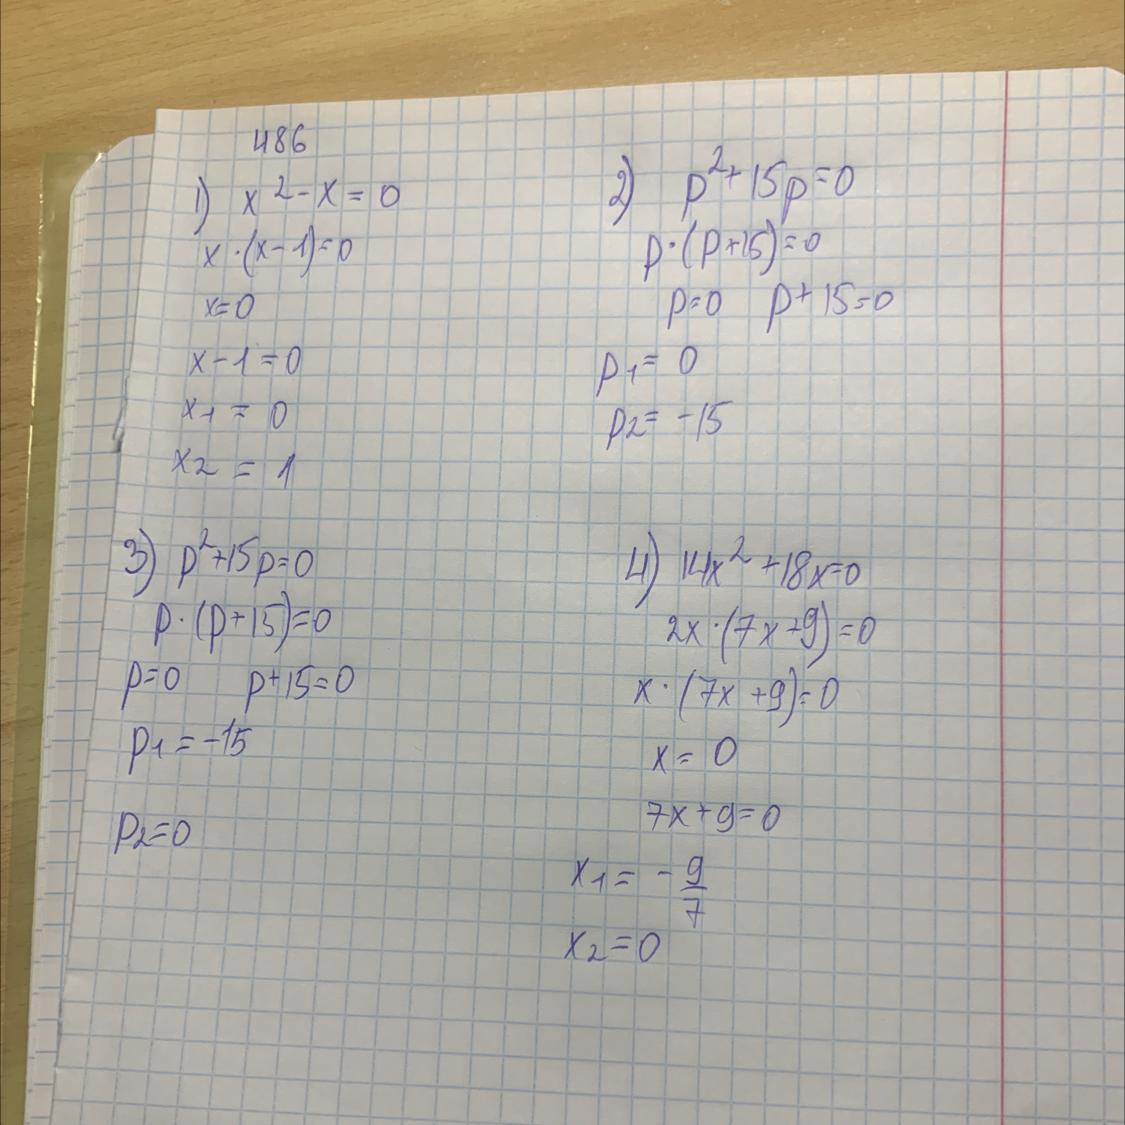 486
1) x² - x = 0
x · (x - 1) = 0
x = 0
x - 1 = 0
x₁ = 0
x₂ = 1
2) p² + 15p = 0
p · (p + 15) = 0
p = 0 p + 15 = 0
p₁ = 0
p₂ = -15
3) p² + 15p = 0
p · (p + 15) = 0
p = 0 p + 15 = 0
p₁ = -15
p₂ = 0
4) 14x² + 18x = 0
2x · (7x + 9) = 0
x · (7x + 9) = 0
x = 0
7x + 9 = 0
x₁ = - 9/7
x₂ = 0